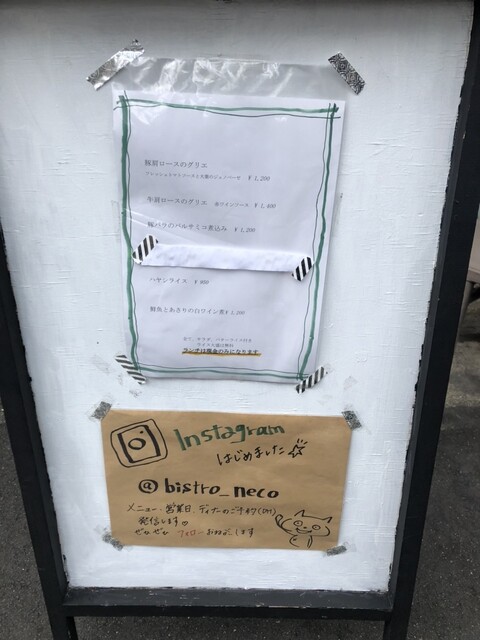 豚肩ロースのグリエ
フレッシュトマトソースと大葉のジェノベーゼ ¥1,200
牛肩ロースのグリエ 赤ワインソース ¥1,400
豚バラのバルサミコ煮込み ¥1,200
ハヤシライス ¥900
鮮魚とあさりの白ワイン蒸¥1,200
全て、サラダ、バターライス付き
ライス大盛は無料
ランチは現金のみになります
Instagram
はじめました☆
@bistro_neco
メニュー、営業日、ディナーのご予約(DM)
発信します♡
ぜひぜひ フォローお願いします